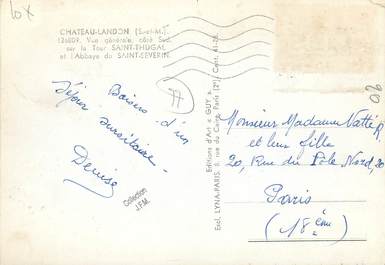 CHATEAU-LANDON (S.-et-M.)
126809. Vue générale, côté Sud,
sur la Tour SAINT-THUGAL
et l'Abbaye du SAINT-SEVERIN.
Baisers d'un
séjour
Denise
Collection
J.F.M.
Editions d'Art « GUY »
Excl. LYNA-PARIS, 8, rue du Caire, Paris (2°) Cent. 61-26
77
Monsieur Madame
et leur fille
20, Rue du Pôle Nord, 20
Paris
(18ème)